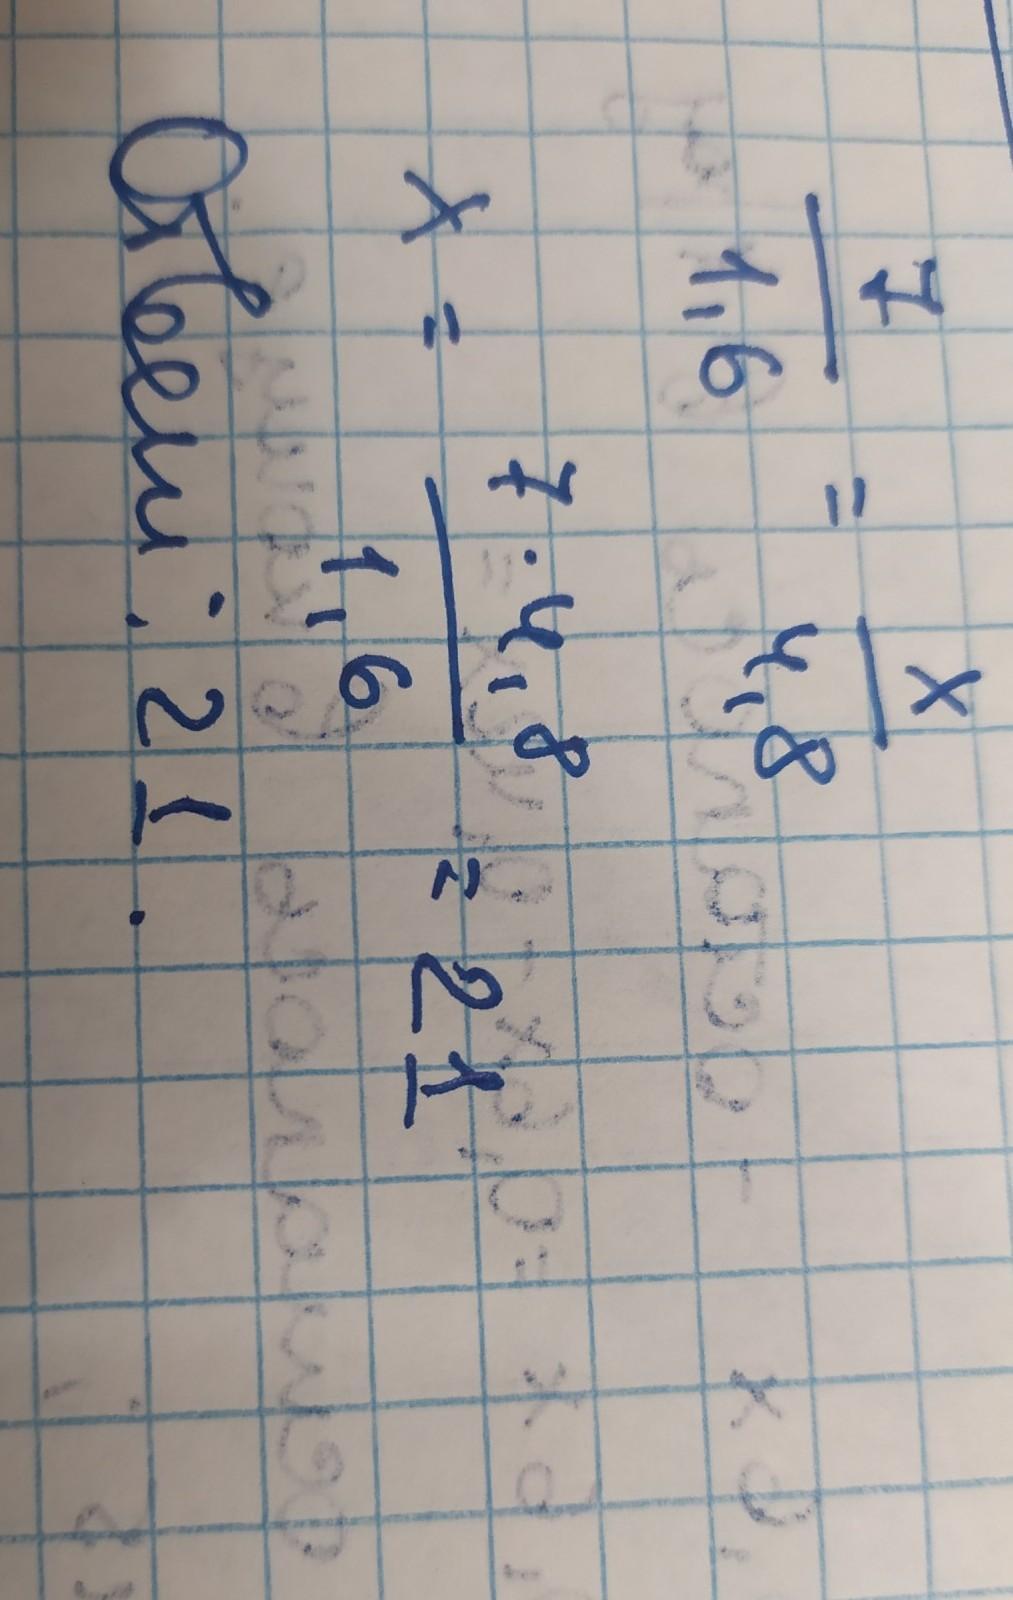 7/1,6 = x/4,8
x = 7·4,8/1,6 = 21
Ответ: 21.